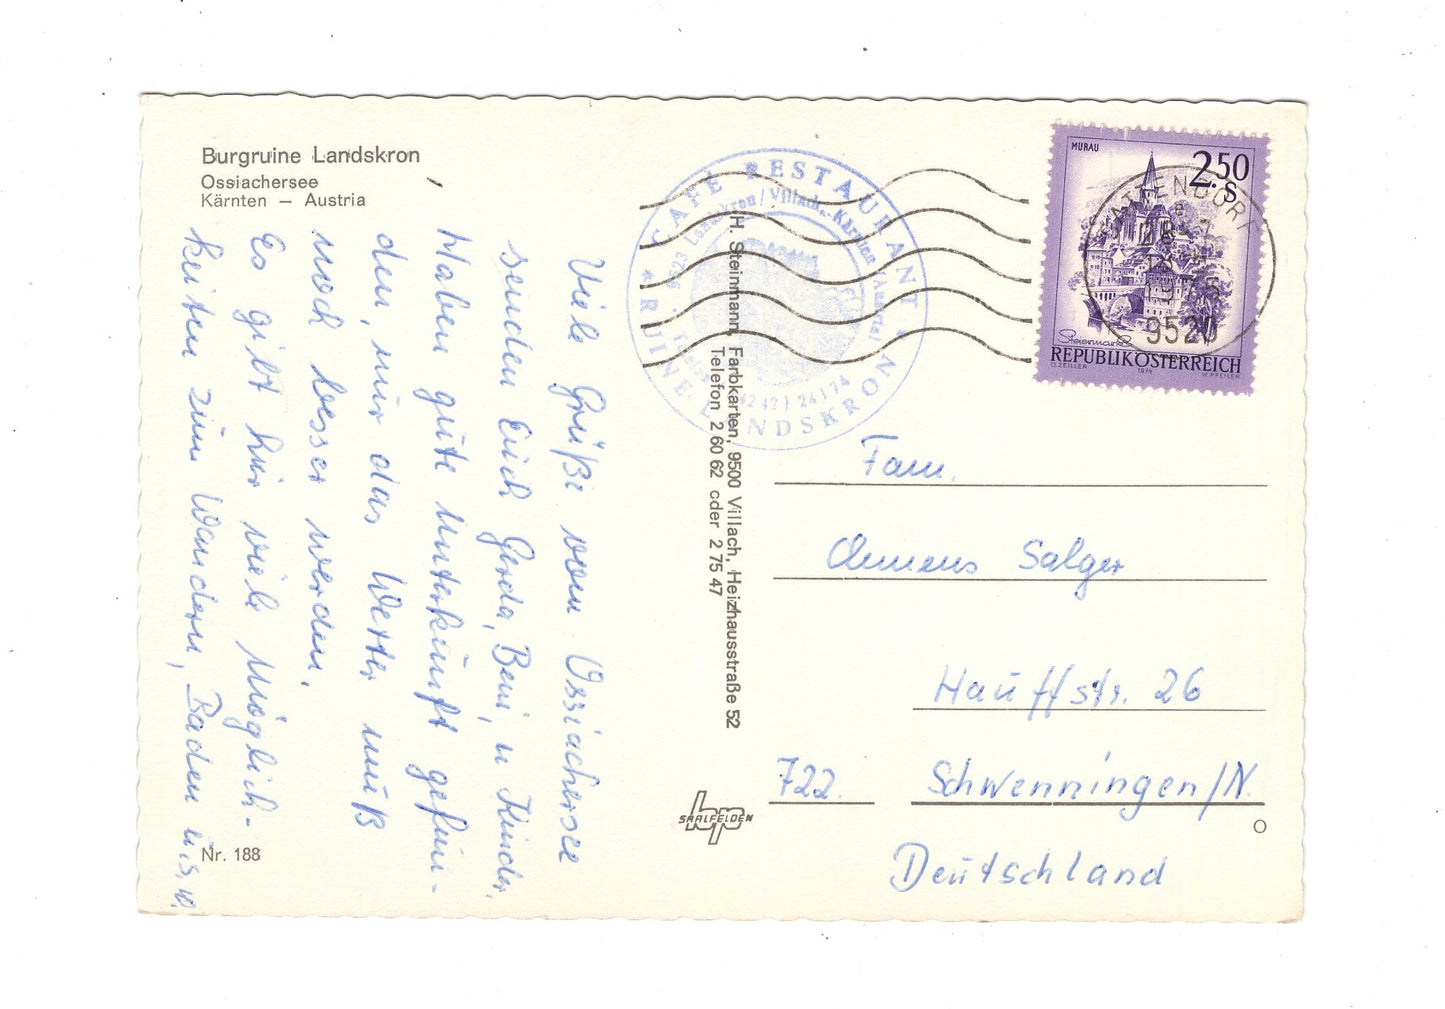 Burgruine Landskron
Ossiachersee
Kärnten — Austria
Viele Grüße vom Ossiachersee
senden Euch Gerda, Beni, u Kinder.
Haben gute Unterkünft gefun-
den, nur das Wetter muß
noch besser werden.
Es gibt hier viele Möglich-
keiten zum Wandern, Baden u.s.w.
Nr. 188
H. Steinmann, Farbkarten, 9500 Villach, Heizhausstraße 52
Telefon 2 60 62 oder 2 75 47
SAALFELDEN
CAFÉ RESTAURANT
* RUINE LANDSKRON
9523 Landskron/Villach, Kärnten (Austria)
24174
MURAU
2.50
S
Steiermark
REPUBLIK ÖSTERREICH
O. ZEILLER
1974
W. PFEILER
SATTENDORF
28.-7
1975
9520
Fam.
Clemens Salger
Hauffstr. 26
722. Schwenningen/N.
Deutschland